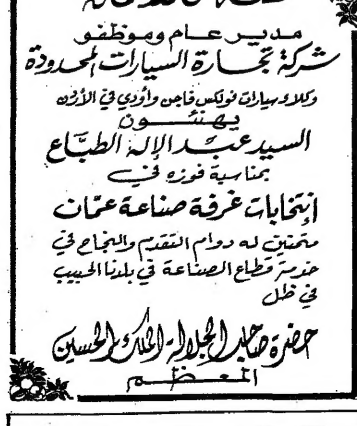 مدير عام وموظفو
شركة تجارة السيارات المحدودة
وكلاء سيارات فولكس فاجن وأودي في الأردن
يهنئون
السيد عبد الإله الطباع
بمناسبة فوزه في
إنتخابات غرفة صناعة عمان
متمنين له دوام التقدم والنجاح في
خدمة قطاع الصناعة في بلدنا الحبيب
في ظل
حضرة صاحب الجلالة الملك الحسين
المعظم